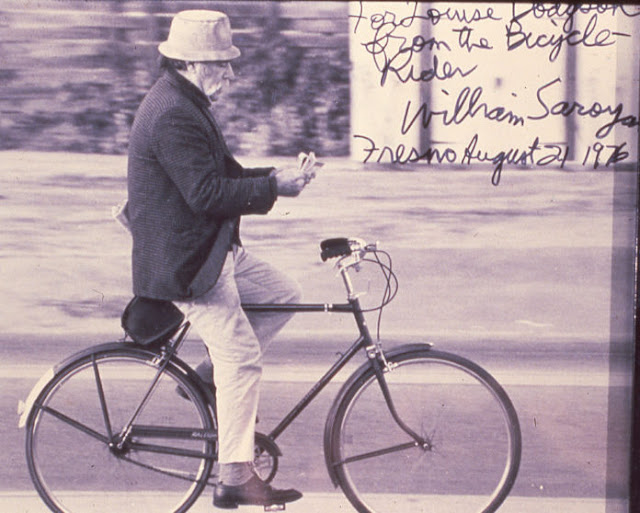 For Louise Dodgson
from the Bicycle-
Rider
William Saroya
Fresno August 21 1976